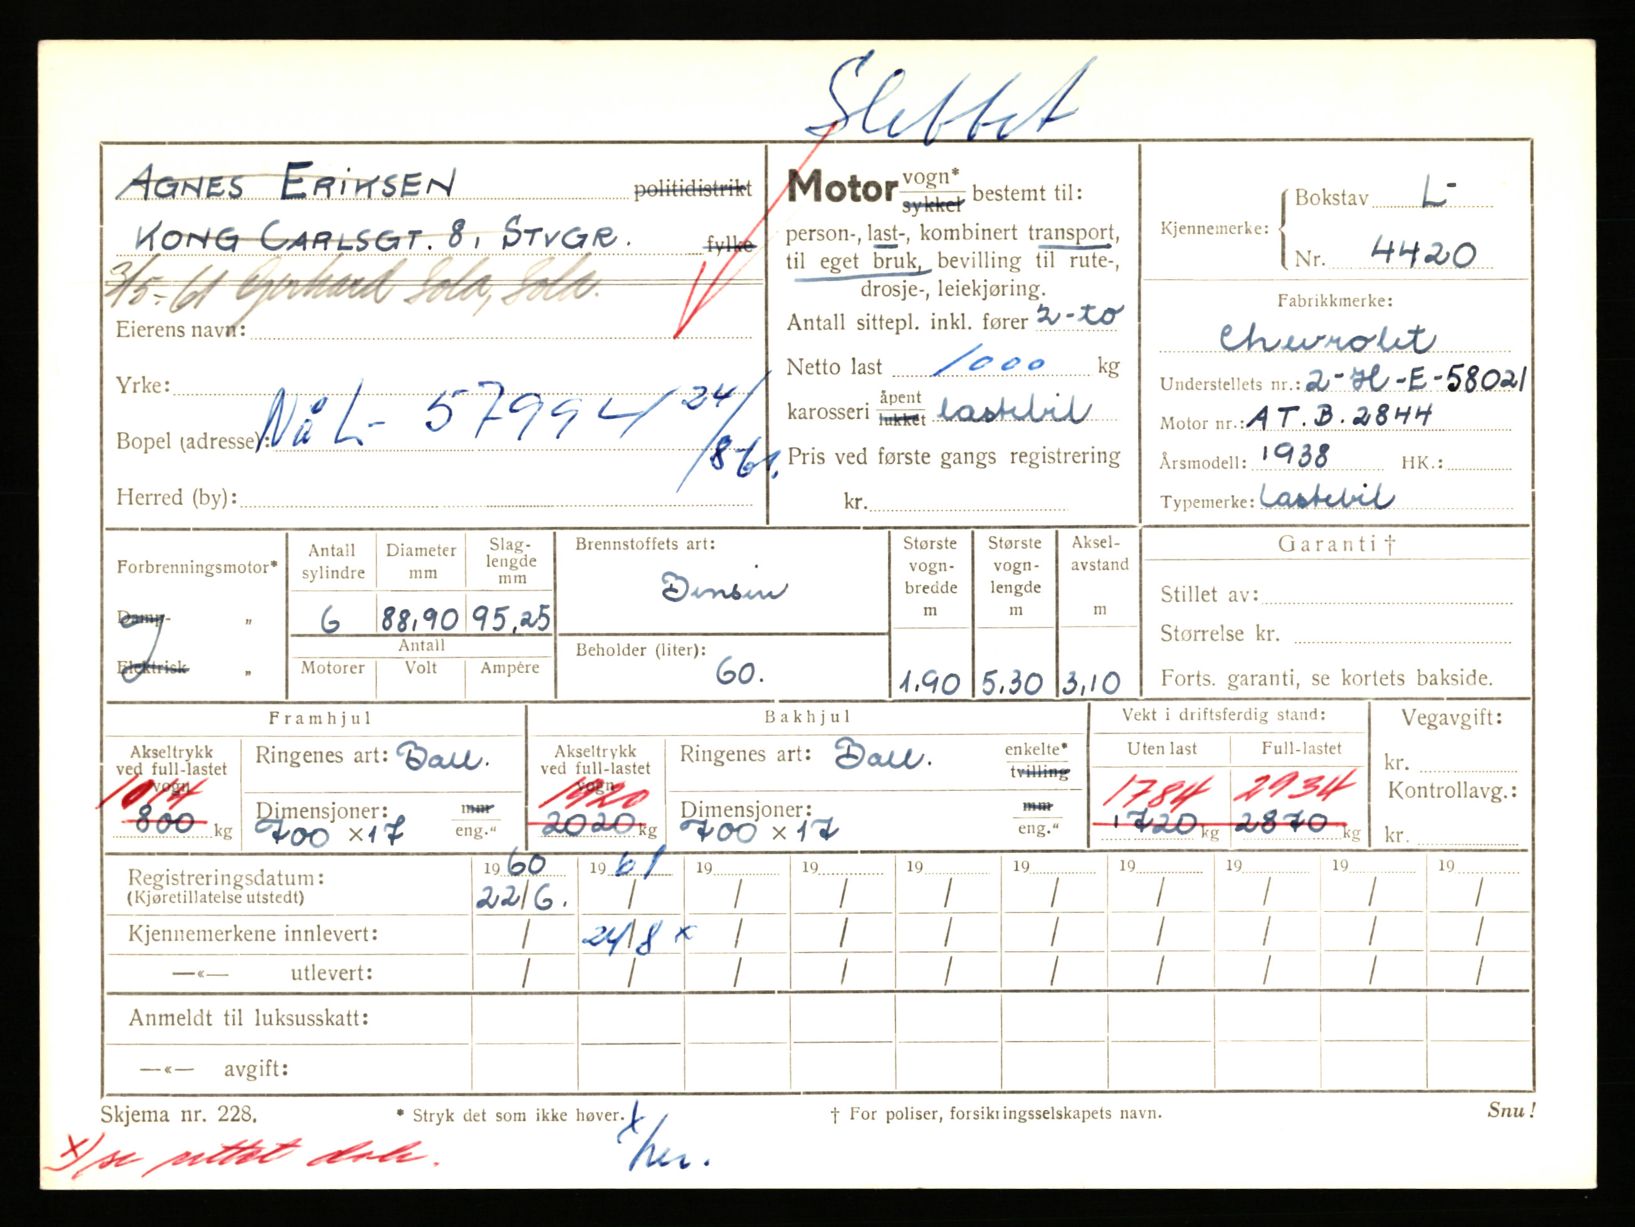 Slettet
AGNES ERIKSEN politidistrikt
KONG CARLSGT. 8, STVGR. fylke
3/5-61 Gerhard Sola, Sola.
Eierens navn:
Yrke:
Nå L- 57994 24/8-61.
Bopel (adresse):
Herred (by):
Motor vogn* sykkel bestemt til:
person-, last-, kombinert transport,
til eget bruk, bevilling til rute-,
drosje-, leiekjøring.
Antall sittepl. inkl. fører 2-to
Netto last 1000 kg
karosseri åpent lukket lastebil
Pris ved første gangs registrering
kr.
Kjennemerke: Bokstav L-
Nr. 4420
Fabrikkmerke:
Chevrolet
Understellets nr.: 2-H-E-58021
Motor nr.: AT.B.2844
Årsmodell: 1938 HK.:
Typemerke: Lastebil
Forbrenningsmotor*
Damp- "
Elektrisk "
Antall sylindre
Diameter mm
Slag-lengde mm
6 88,90 95,25
Antall
Motorer Volt Ampére
Brennstoffets art:
Bensin
Beholder (liter):
60.
Største vogn-bredde m
Største vogn-lengde m
Aksel-avstand m
1.90 5.30 3,10
Garanti †
Stillet av:
Størrelse kr.
Forts. garanti, se kortets bakside.
Framhjul
Akseltrykk ved full-lastet vogn
1014
800 kg
Ringenes art: Ball.
Dimensjoner: mm
700 x 17 eng."
Bakhjul
Akseltrykk ved full-lastet vogn
1920
2020 kg
Ringenes art: Ball. enkelte* tvilling
Dimensjoner: mm
700 x 17 eng."
Vekt i driftsferdig stand:
Uten last Full-lastet
1784 2934
1720 kg 2870 kg
Vegavgift:
kr.
Kontrollavg.:
kr.
1960 1961 19 19 19 19 19 19 19 19
Registreringsdatum: 22/6. / / / / / / / / /
(Kjøretillatelse utstedt)
Kjennemerkene innlevert: / 24/8 x / / / / / / / /
—«— utlevert: / / / / / / / / / /
Anmeldt til luksusskatt:
—«— avgift:
Skjema nr. 228. * Stryk det som ikke høver. † For poliser, forsikringsselskapets navn. Snu!
x) se rettet data.
x/her.